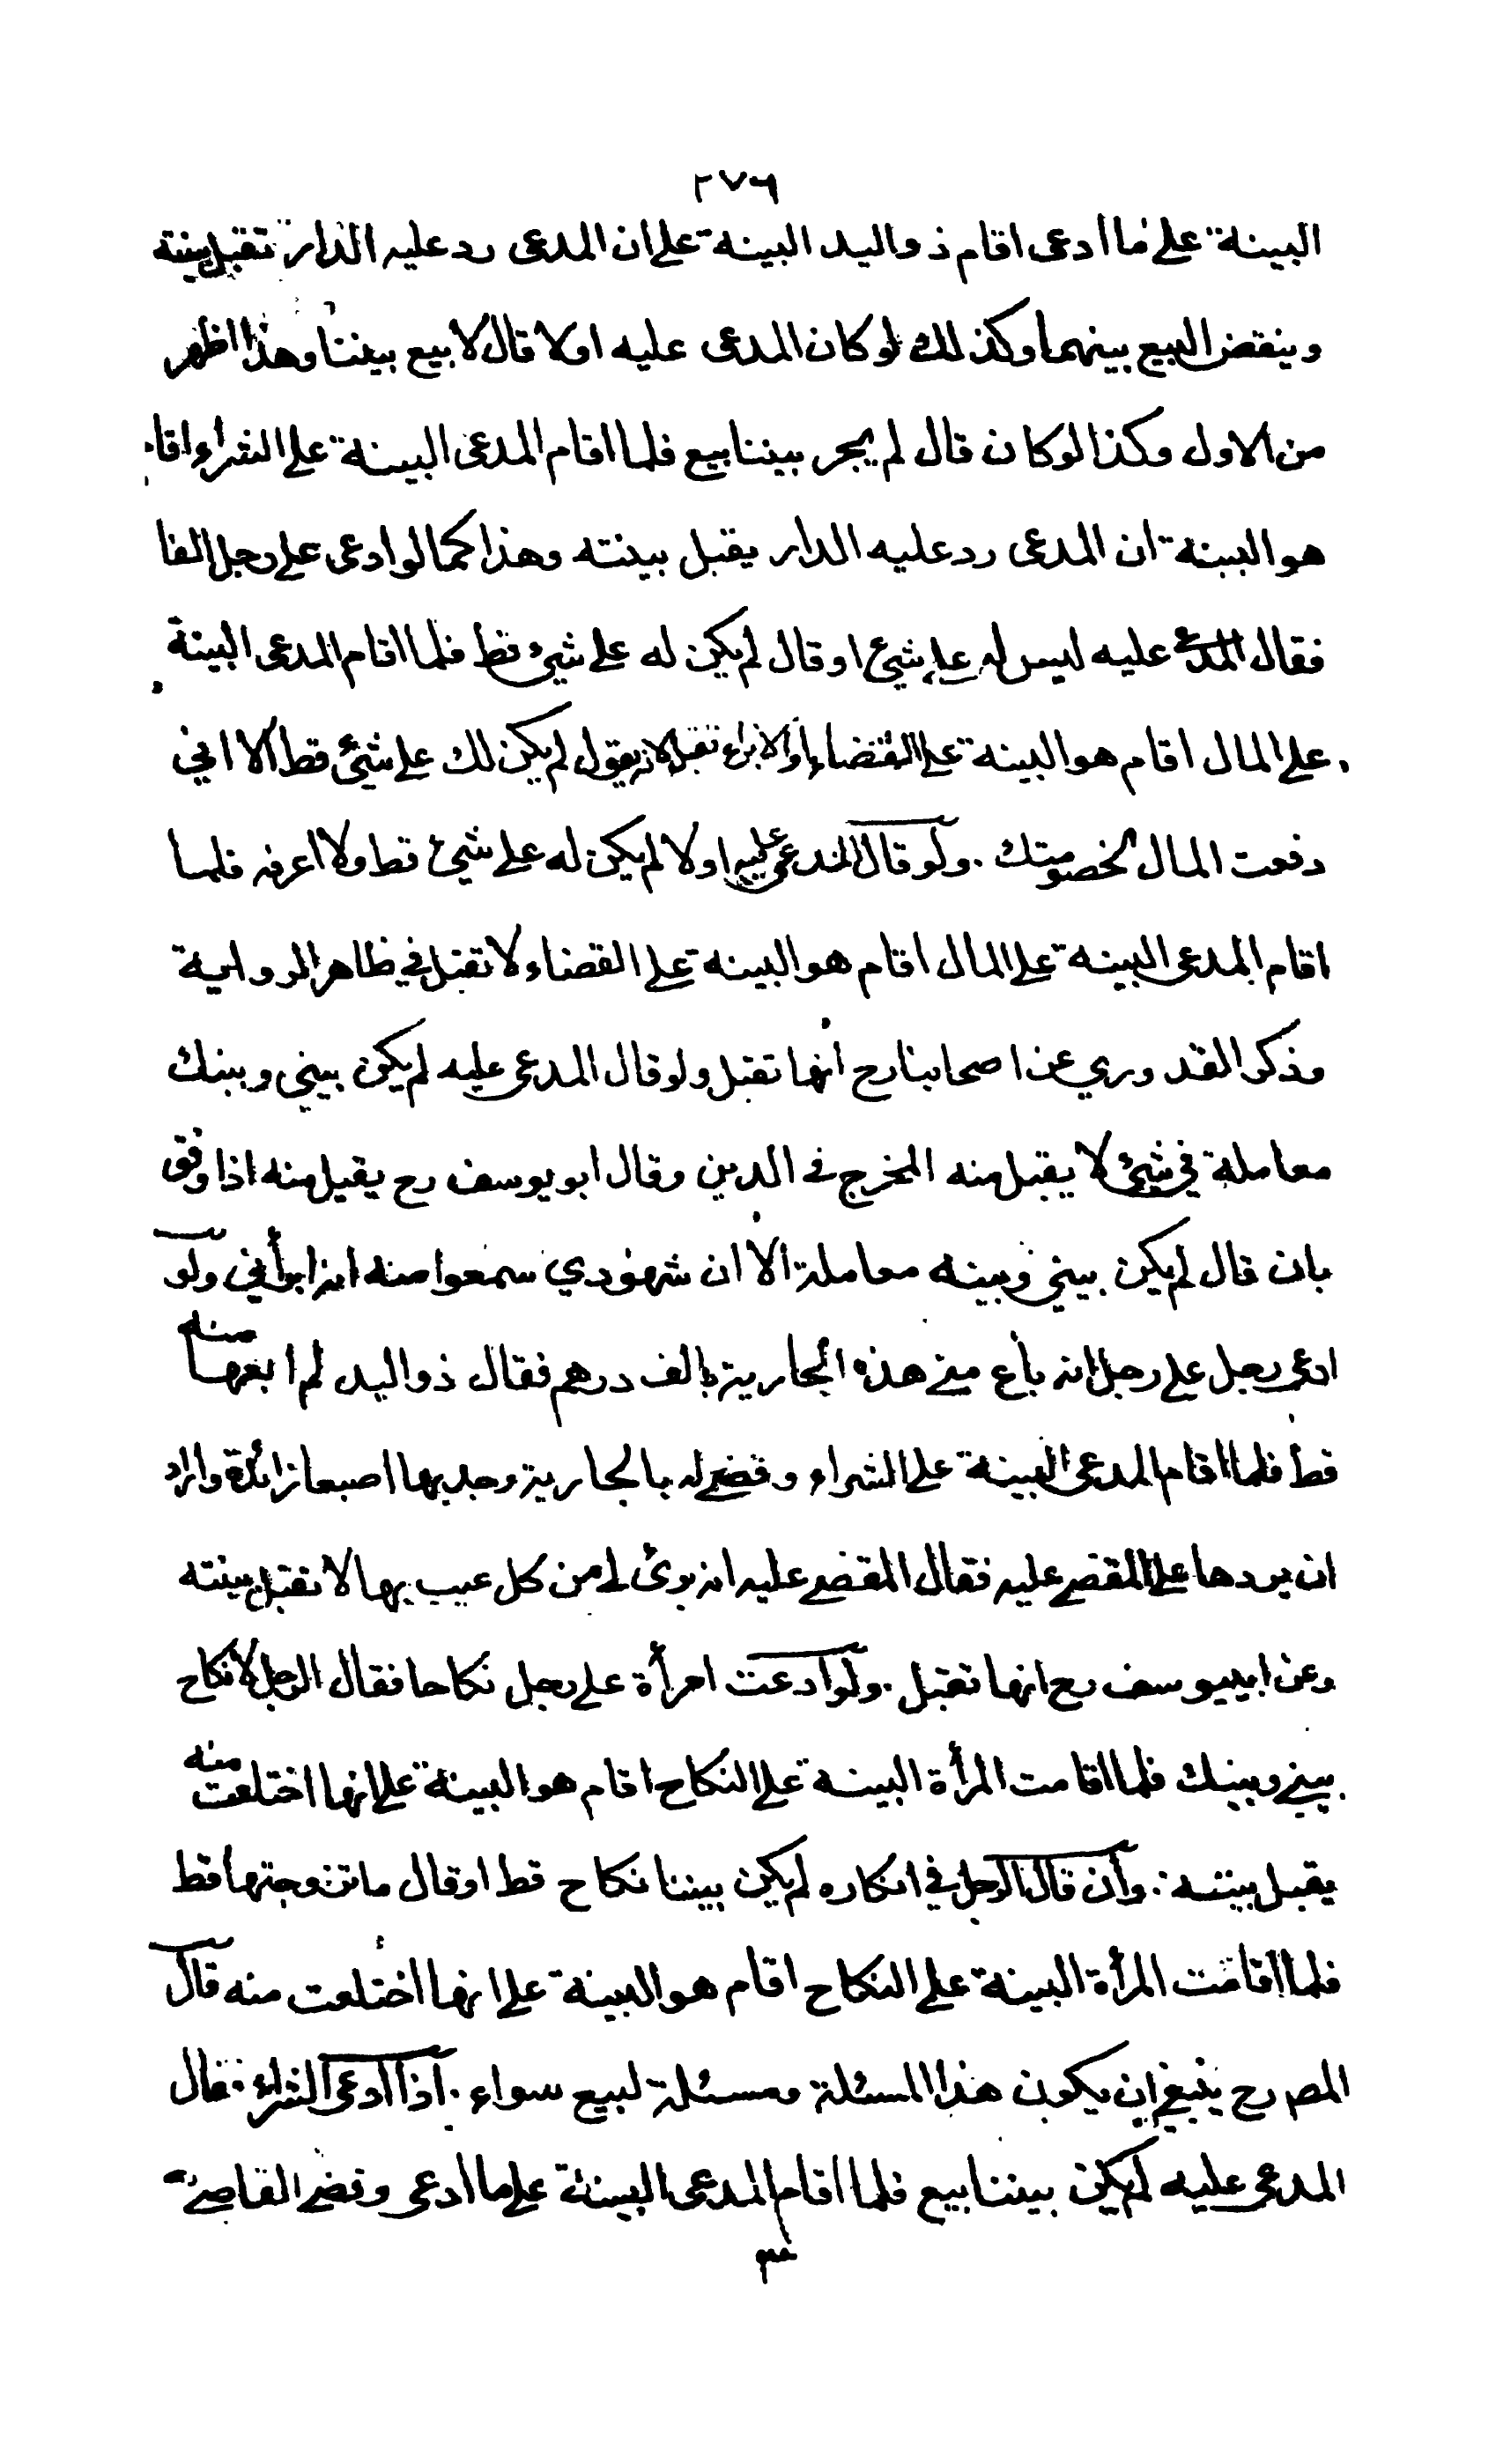 ٢٧٦
البينة على ما ادعى اقام ذو اليد البينة على ان المدعى رد عليه الدار تقبل بينته
وينقض البيع بينهما وكذلك لو كان المدعى عليه اولا قال لا بيع بيننا وهذا اظهر
من الاول وكذا لو كان قال لم يجر بيننا بيع فلما اقام المدعى البينة على الشراء اقا
هو البينة ان المدعى رد عليه الدار يقبل بينته وهذا كما لو ادعى على رجل الفا
فقال المدعى عليه ليس له على شيئ او قال لم يكن له على شيئ قط فلما اقام المدعى البينة
على المال اقام هو البينة على القضاء او الابراء تقبل لانه يقول لم يكن لك على شيئ قط الا اني
دفعت المال لخصومتك . ولو قال المدعى عليه اولا لم يكن له على شيئ قط ولا اعرفه فلما
اقام المدعى البينة على المال اقام هو البينة على القضاء لا تقبل في ظاهر الرواية
وذكر القدوري عن اصحابنا رح انها تقبل ولو قال المدعى عليه لم يكن بيني وبينك
معاملة في شيئ لا يقبل منه المخرج في الدين وقال ابو يوسف رح يقبل منه اذا وفق
بان قال لم يكن بيني وبينه معاملة الا ان شهودي سمعوا منه انه ابرأني ولو
ادعى رجل على رجل انه باع منى هذه الجارية بالف درهم فقال ذو اليد لم ابعها منه
قط فلما اقام المدعى البينة على الشراء وقضى له بالجارية وجد بها اصبعا زائدة واراد
ان يردها على المقضى عليه فقال المقضى عليه انه برئ لى من كل عيب بها لا تقبل بينته
وعن ابييوسف رح انها تقبل . ولو ادعت امرأة على رجل نكاحا فقال الرجل لا نكاح
بينى وبينك فلما اقامت المرأة البينة على النكاح اقام هو البينة على انها اختلعت منه
يقبل بينته . وان قال الرجل في انكاره لم يكن بيننا نكاح قط او قال ما تزوجتها قط
فلما اقامت المرأة البينة على النكاح اقام هو البينة على انها اختلعت منه قال
المص رح ينبغى ان يكون هذا المسئلة ومسئلة لبيع سواء . اذا ادعى الشراء فقال
المدعى عليه لم يكن بيننا بيع فلما اقام المدعى البينة على ما ادعى وقضى القاضى